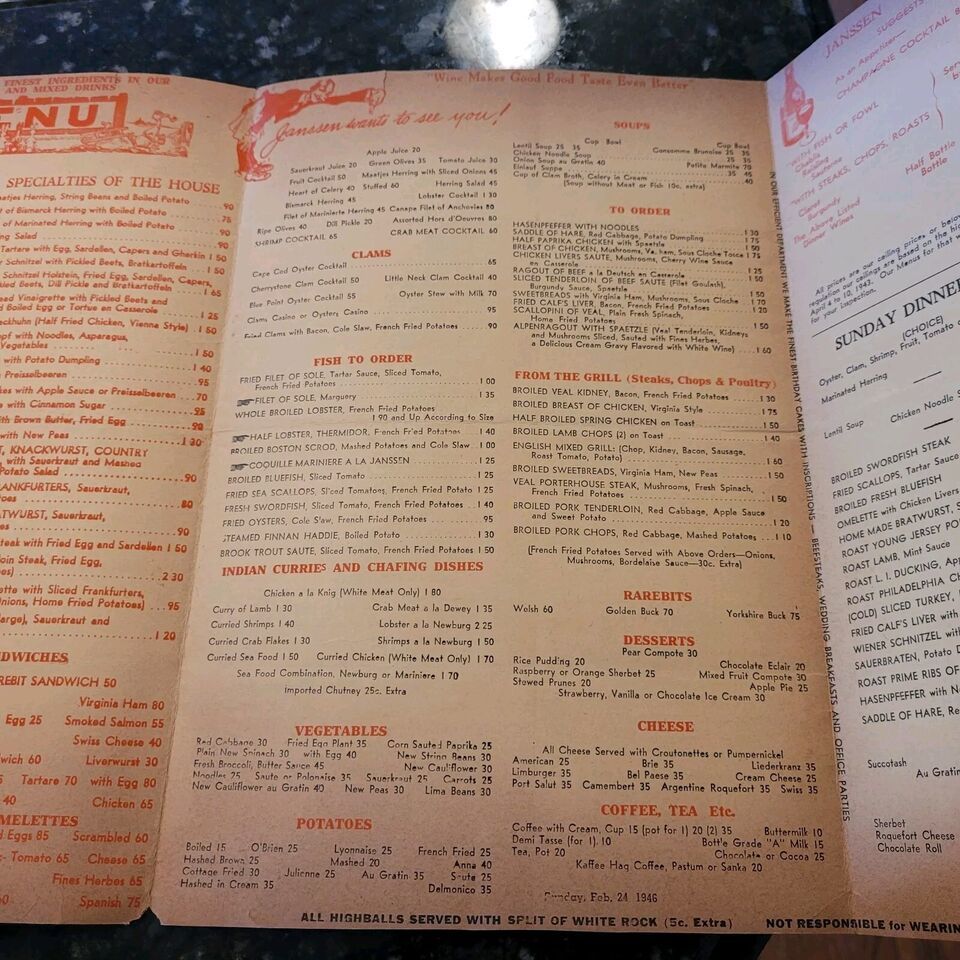 FINEST INGREDIENTS IN OUR
AND MIXED DRINKS
ENU
SPECIALTIES OF THE HOUSE
Herring, String Beans and Boiled Potato 90
of Bismarck Herring with Boiled Potato 75
of Marinated Herring with Boiled Potato 90
Salad 50
Tartare with Egg, Sardellen, Capers and Gherkin 1 50
Schnitzel with Pickled Beets, Bratkartoffeln 1 50
Schnitzel Holstein, Fried Egg, Sardellen, Capers,
Beets, Dill Pickle and Bratkartoffeln 1 65
Vinaigrette with Pickled Beets and
Boiled Egg or Tortue en Casserole 1 25
(Half Fried Chicken, Vienna Style) 1 50
with Noodles, Asparagus,
Vegetables 1 50
with Potato Dumpling 1 40
Preisselbeeren 95
with Apple Sauce or Preisselbeeren 70
with Cinnamon Sugar 95
with Brown Butter, Fried Egg 90
with New Peas 1 30
KNACKWURST, COUNTRY
with Sauerkraut and Mashed
Potato Salad 90
FRANKFURTERS, Sauerkraut,
80
Sauerkraut,
90
Steak with Fried Egg and Sardellen 1 50
Steak, Fried Egg,
2 30
with Sliced Frankfurters,
Onions, Home Fried Potatoes) 95
Sauerkraut and
1 20
SANDWICHES
REBIT SANDWICH 50
Virginia Ham 80
Egg 25 Smoked Salmon 55
Swiss Cheese 40
60 Liverwurst 30
Tartare 70 with Egg 80
40 Chicken 65
OMELETTES
Eggs 85 Scrambled 60
Tomato 65 Cheese 65
Fines Herbes 65
Spanish 75
"Wine Makes Good Food Taste Even Better"
Janssen wants to see you!
Apple Juice 20
Sauerkraut Juice 20 Green Olives 35 Tomato Juice 30
Fruit Cocktail 50 Maatjes Herring with Sliced Onions 45
Heart of Celery 40 Stuffed 60 Herring Salad 45
Bismarck Herring 45 Lobster Cocktail 1 30
Filet of Marinierte Herring 45 Canape Filet of Anchovies 80
Ripe Olives 40 Dill Pickle 20 Assorted Hors d'Oeuvres 80
SHRIMP COCKTAIL 65 CRAB MEAT COCKTAIL 60
CLAMS
Cape Cod Oyster Cocktail 65
Cherrystone Clam Cocktail 50 Little Neck Clam Cocktail 40
Blue Point Oyster Cocktail 55 Oyster Stew with Milk 70
Clams Casino or Oysters Casino 95
Fried Clams with Bacon, Cole Slaw, French Fried Potatoes 90
FISH TO ORDER
FRIED FILET OF SOLE, Tartar Sauce, Sliced Tomato,
French Fried Potatoes 1 00
FILET OF SOLE, Marguery 1 35
WHOLE BROILED LOBSTER, French Fried Potatoes
1 90 and Up According to Size
HALF LOBSTER, THERMIDOR, French Fried Potatoes 1 40
BROILED BOSTON SCROD, Mashed Potatoes and Cole Slaw 1 00
COQUILLE MARINIERE A LA JANSSEN 1 25
BROILED BLUEFISH, Sliced Tomato 1 25
FRIED SEA SCALLOPS, Sliced Tomatoes, French Fried Potato 1 25
FRESH SWORDFISH, Sliced Tomato, French Fried Potatoes 1 40
FRIED OYSTERS, Cole Slaw, French Fried Potatoes 95
STEAMED FINNAN HADDIE, Boiled Potato 1 30
BROOK TROUT SAUTE, Sliced Tomato, French Fried Potatoes 1 50
INDIAN CURRIES AND CHAFING DISHES
Chicken a la Knig (White Meat Only) 1 80
Curry of Lamb 1 30 Crab Meat a la Dewey 1 35
Curried Shrimps 1 40 Lobster a la Newburg 2 25
Curried Crab Flakes 1 30 Shrimps a la Newburg 1 50
Curried Sea Food 1 50 Curried Chicken (White Meat Only) 1 70
Sea Food Combination, Newburg or Mariniere 1 70
Imported Chutney 25c. Extra
VEGETABLES
Red Cabbage 30 Fried Egg Plant 35 Corn Sauted Paprika 25
Plain New Spinach 30 with Egg 40 New String Beans 30
Fresh Broccoli, Butter Sauce 45 New Cauliflower 30
Noodles 25 Saute or Polonaise 35 Sauerkraut 25 Carrots 25
New Cauliflower au Gratin 40 New Peas 30 Lima Beans 30
POTATOES
Boiled 15 O'Brien 25 Lyonnaise 25 French Fried 25
Hashed Brown 25 Mashed 20 Anna 40
Cottage Fried 30 Julienne 25 Au Gratin 35 Saute 25
Hashed in Cream 35 Delmonico 35
SOUPS
Cup Bowl Cup Bowl
Lentil Soup 25 35 Consomme Brunoise 25 35
Chicken Noodle Soup 25 35
Onion Soup au Gratin 40 Petite Marmite 70
Einlauf Suppe 35 45
Cup of Clam Broth, Celery in Cream .40
(Soup without Meat or Fish 10c. extra)
TO ORDER
HASENPFEFFER WITH NOODLES 1 30
SADDLE OF HARE, Red Cabbage, Potato Dumpling 1 75
HALF PAPRIKA CHICKEN with Spaetzle 1 50
BREAST OF CHICKEN, Mushrooms, Va. ham, Sous Cloche Tosca 1 75
CHICKEN LIVERS SAUTE, Mushrooms, Cherry Wine Sauce
en Casserole 1 25
RAGOUT OF BEEF a la Deutsch en Casserole
SLICED TENDERLOIN OF BEEF SAUTE (Filet Goulash),
Burgundy Sauce, Spaetzle 1 50
SWEETBREADS with Virginia Ham, Mushrooms, Sous Cloche 1 70
FRIED CALF'S LIVER, Bacon, French Fried Potatoes 1 20
SCALLOPINI OF VEAL, Plain French Sauce,
Home Fried Potatoes 1 50
ALPENRAGOUT WITH SPAETZLE (Veal Tenderloin, Kidneys
and Mushrooms Sliced, Sauted with Fines Herbes,
a Delicious Cream Gravy Flavored with White Wine) 1 60
FROM THE GRILL (Steaks, Chops & Poultry)
BROILED VEAL KIDNEY, Bacon, French Fried Potatoes 1 30
BROILED BREAST OF CHICKEN, Virginia Style 1 75
HALF BROILED SPRING CHICKEN on Toast 1 50
BROILED LAMB CHOPS (2) on Toast 1 40
ENGLISH MIXED GRILL: (Chop, Kidney, Bacon, Sausage,
Roast Tomato, Potato) 1 60
BROILED SWEETBREADS, Virginia Ham, New Peas 1 50
VEAL PORTERHOUSE STEAK, Mushrooms, Fresh Spinach,
French Fried Potatoes 1 50
BROILED PORK TENDERLOIN, Red Cabbage, Apple Sauce
and Sweet Potato 1 20
BROILED PORK CHOPS, Red Cabbage, Mashed Potatoes 1 10
(French Fried Potatoes Served with Above Orders—Onions,
Mushrooms, Bordelaise Sauce—30c. Extra)
RAREBITS
Welsh 60 Golden Buck 70 Yorkshire Buck 75
DESSERTS
Pear Compote 30
Rice Pudding 20 Chocolate Eclair 20
Raspberry or Orange Sherbet 25 Mixed Fruit Compote 30
Stewed Prunes 20 Apple Pie 25
Strawberry, Vanilla or Chocolate Ice Cream 30
CHEESE
All Cheese Served with Croutonettes or Pumpernickel
American 25 Brie 35 Liederkranz 35
Limburger 35 Bel Paese 35 Cream Cheese 25
Port Salut 35 Camembert 35 Argentine Roquefort 35 Swiss 35
COFFEE, TEA Etc.
Coffee with Cream, Cup 15 (pot for 1) 20 (2) 35 Buttermilk 10
Demi Tasse (for 1) .10 Bottle Grade "A" Milk 15
Tea, Pot 20 Chocolate or Cocoa 25
Kaffee Hag Coffee, Postum or Sanka 20
Sunday, Feb. 24 1946
ALL HIGHBALLS SERVED WITH SPLIT OF WHITE ROCK (5c. Extra)
NOT RESPONSIBLE for WEARIN
IN OUR EFFICIENT DEPARTMENT WE MAKE THE FINEST BIRTHDAY CAKES WITH INSCRIPTIONS BEEFSTEAKS, WEDDING BREAKFASTS AND OFFICE PARTIES
JANSSEN
SUGGESTS
As an Appetizer—
CHAMPAGNE COCKTAIL
"WITH FISH OR FOWL
Chablis
Sauterne
"WITH STEAKS, CHOPS, ROASTS
Claret
Burgundy
The Above Listed
Dinner Wines
Half Bottle
Bottle
All prices are our ceiling prices or below
regulation our ceilings are based on the
April 4 to 10, 1943. Our Menus for that
for your inspection.
SUNDAY DINNER
(CHOICE)
Oyster, Clam, Shrimp, Fruit, Tomato
Marinated Herring
Lentil Soup Chicken Noodle S
BROILED SWORDFISH STEAK
FRIED SCALLOPS, Tartar Sauce
BROILED FRESH BLUEFISH
OMELETTE with Chicken Livers
HOME MADE BRATWURST, S
ROAST YOUNG JERSEY PO
ROAST LAMB, Mint Sauce
ROAST L. I. DUCKING, Ap
ROAST PHILADELPHIA CH
(COLD) SLICED TURKEY,
FRIED CALF'S LIVER with
WIENER SCHNITZEL with
SAUERBRATEN, Potato D
ROAST PRIME RIBS OF
HASENPFEFFER with N
SADDLE OF HARE, Re
Succotash
Au Gratin
Sherbet
Roquefort Cheese
Chocolate Roll